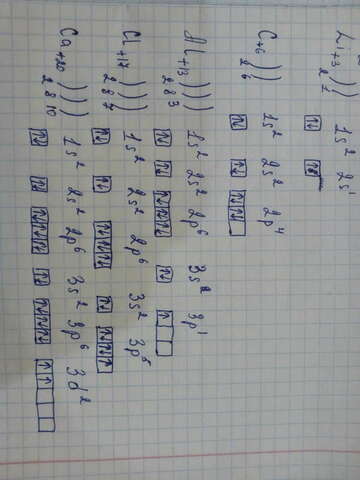 Li+3 ))
2 1
1s² 2s¹
C+6 ))
2 6
1s² 2s² 2p⁴
Al+13 )))
2 8 3
1s² 2s² 2p⁶ 3s² 3p¹
Cl+17 )))
2 8 7
1s² 2s² 2p⁶ 3s² 3p⁵
Ca+20 )))
2 8 10
1s² 2s² 2p⁶ 3s² 3p⁶ 3d²